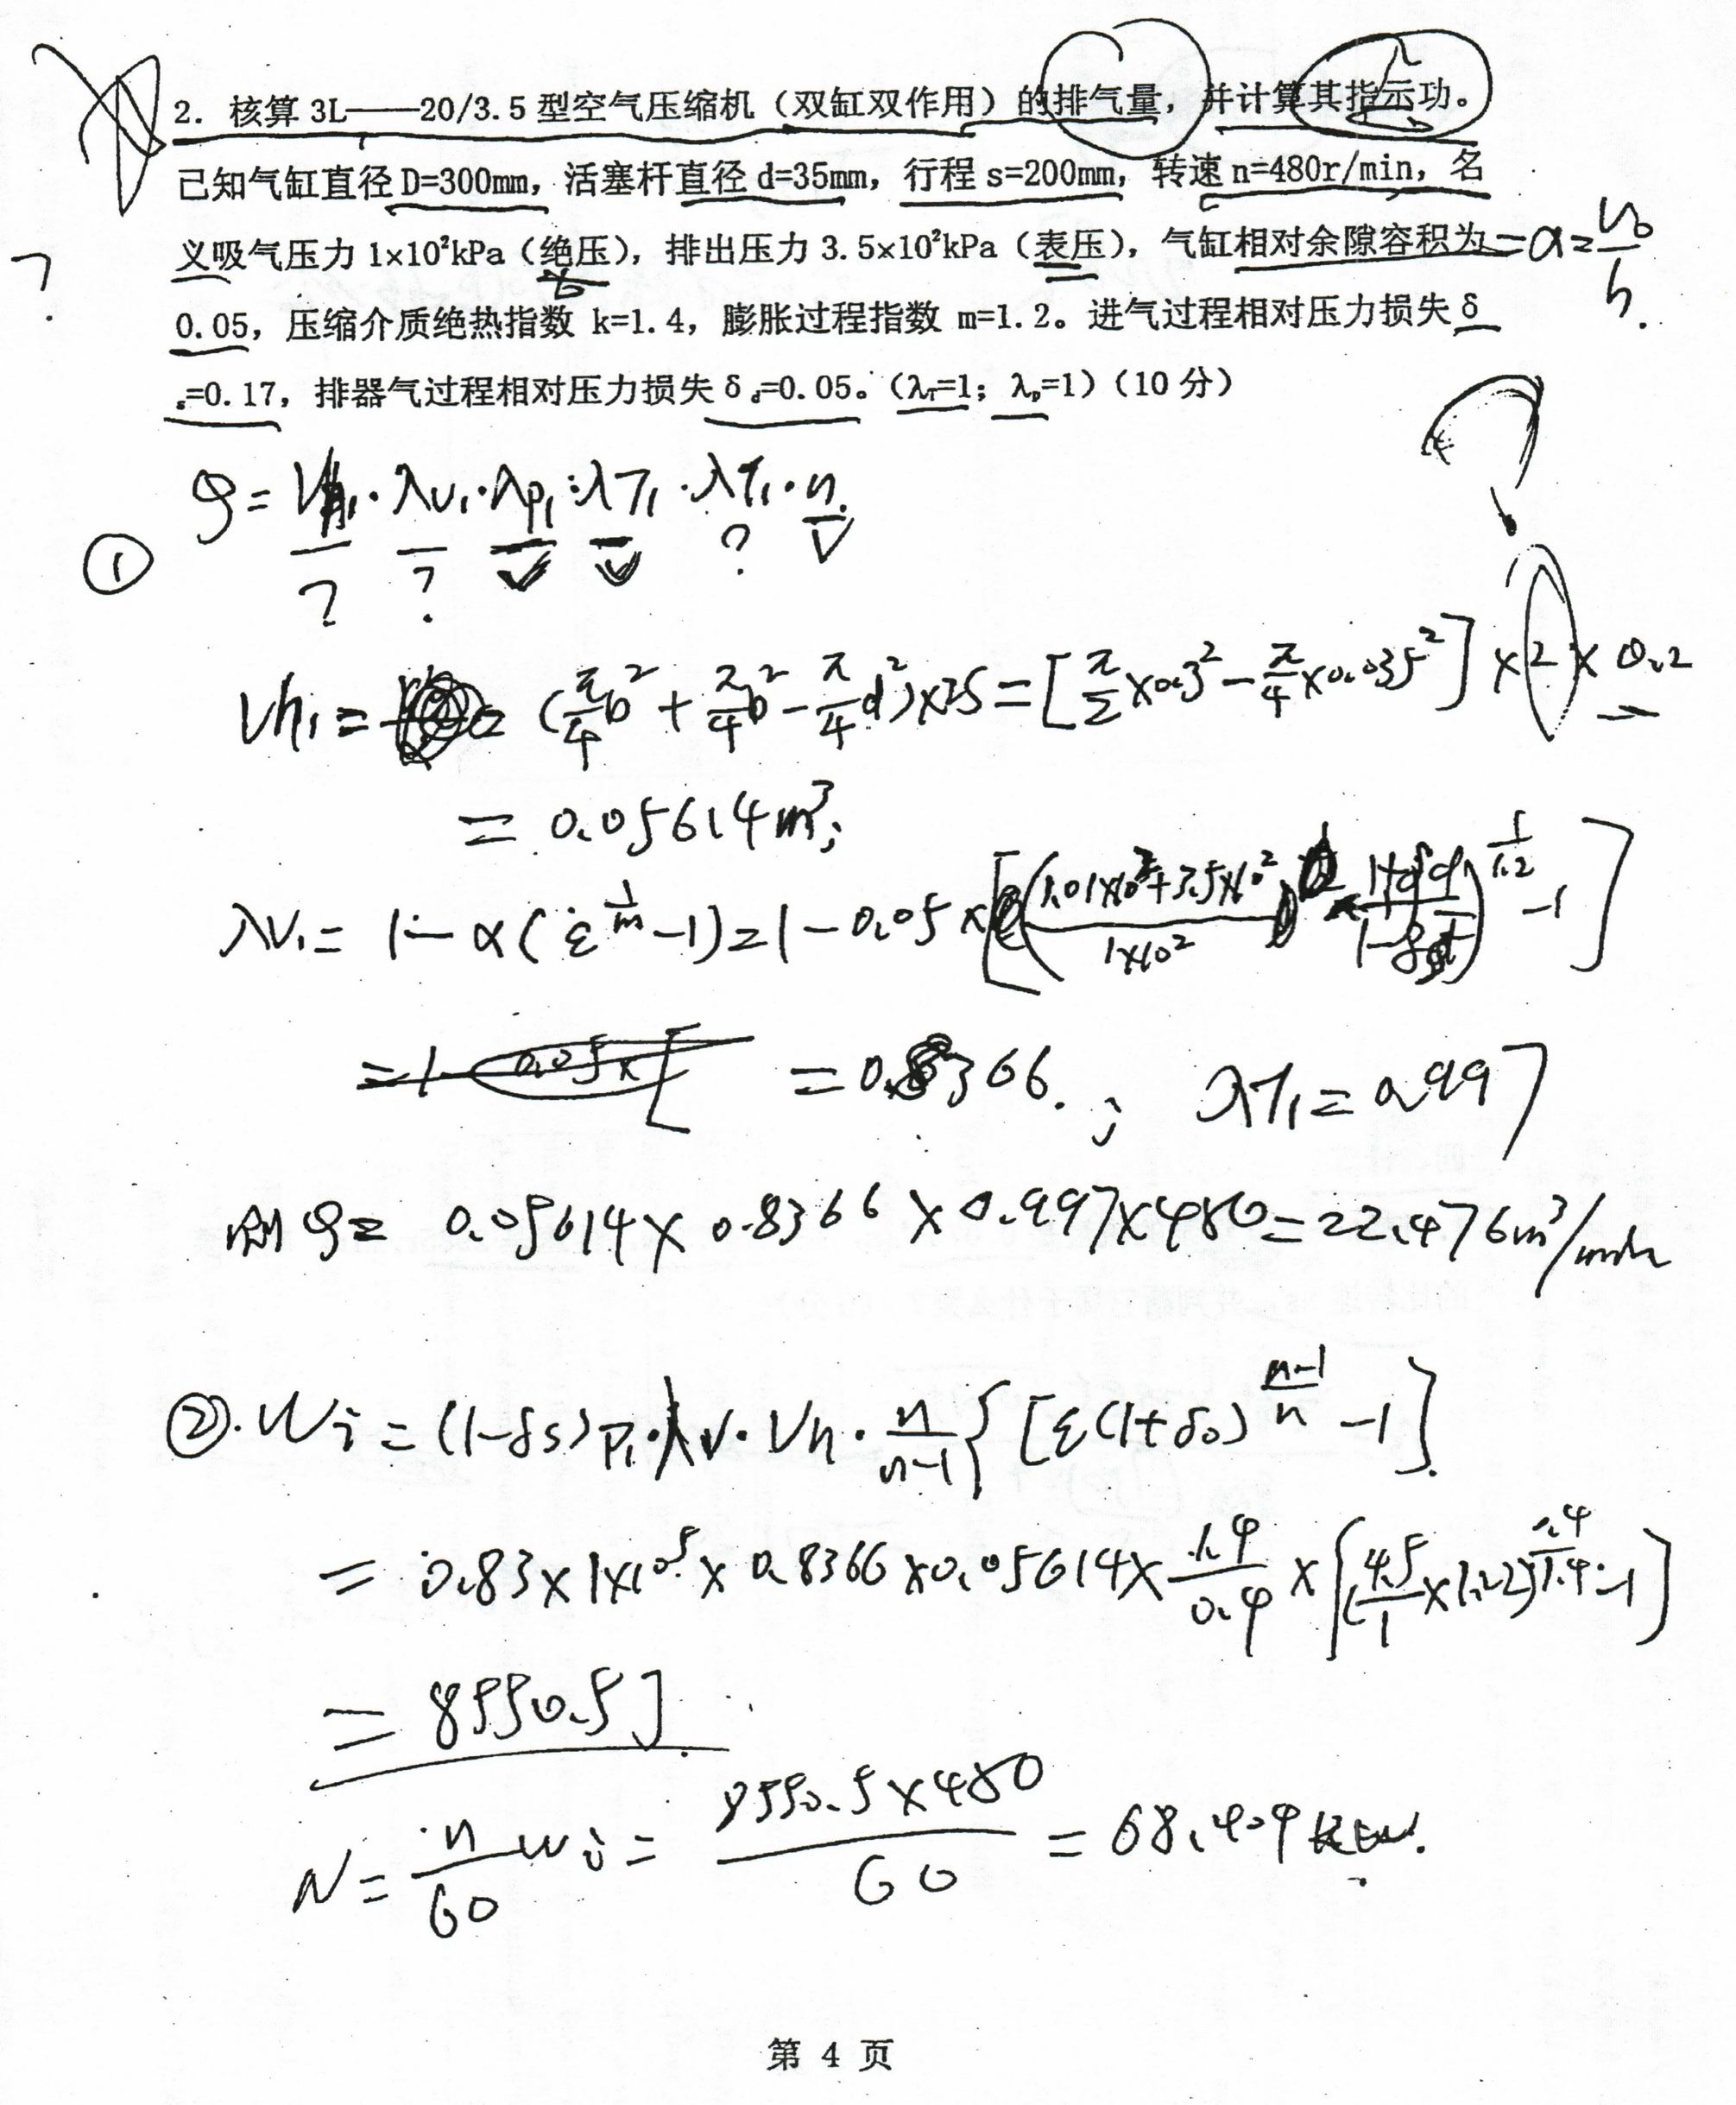 2. 核算 3L——20/3.5 型空气压缩机（双缸双作用）的排气量，并计算其指示功。
已知气缸直径 D=300mm，活塞杆直径 d=35mm，行程 s=200mm，转速 n=480r/min，名
义吸气压力 1×10²kPa（绝压），排出压力 3.5×10²kPa（表压），气缸相对余隙容积为 =α=V₀/h
0.05，压缩介质绝热指数 k=1.4，膨胀过程指数 m=1.2。进气过程相对压力损失 δ
s=0.17，排器气过程相对压力损失 δd=0.05。（λT=1；λp=1）（10 分）
① Q=Vh₁·λv₁·λp₁·λT₁·λT₁·n
? ? ?
Vh₁= (π/4 D²+π/4 D²-π/4 d²)×2S=[π/2×0.3²-π/4×0.035²]×2×0.2
=0.05614m³;
λv₁= 1-α(ε^(1/m)-1)=1-0.05×[((1.01×10²+3.5×10²)/(1×10²)×(1+δd)/(1-δs))^(1/1.2)-1]
=0.8366. ; λT₁=0.997
则Q= 0.05614×0.8366×0.997×480=22.476m³/min
②. Wi=(1-δs)P₁·λv·Vh·n/(n-1){[ε(1+δ₀)^((n-1)/n)-1].
= 0.83×1×10⁵×0.8366×0.05614×1.4/0.4×[(4.5/1×1.22)^(0.4/1.4)-1]
=8550.5J.
N=n/60 wi=(8550.5×480)/60=68.404kW.
第 4 页